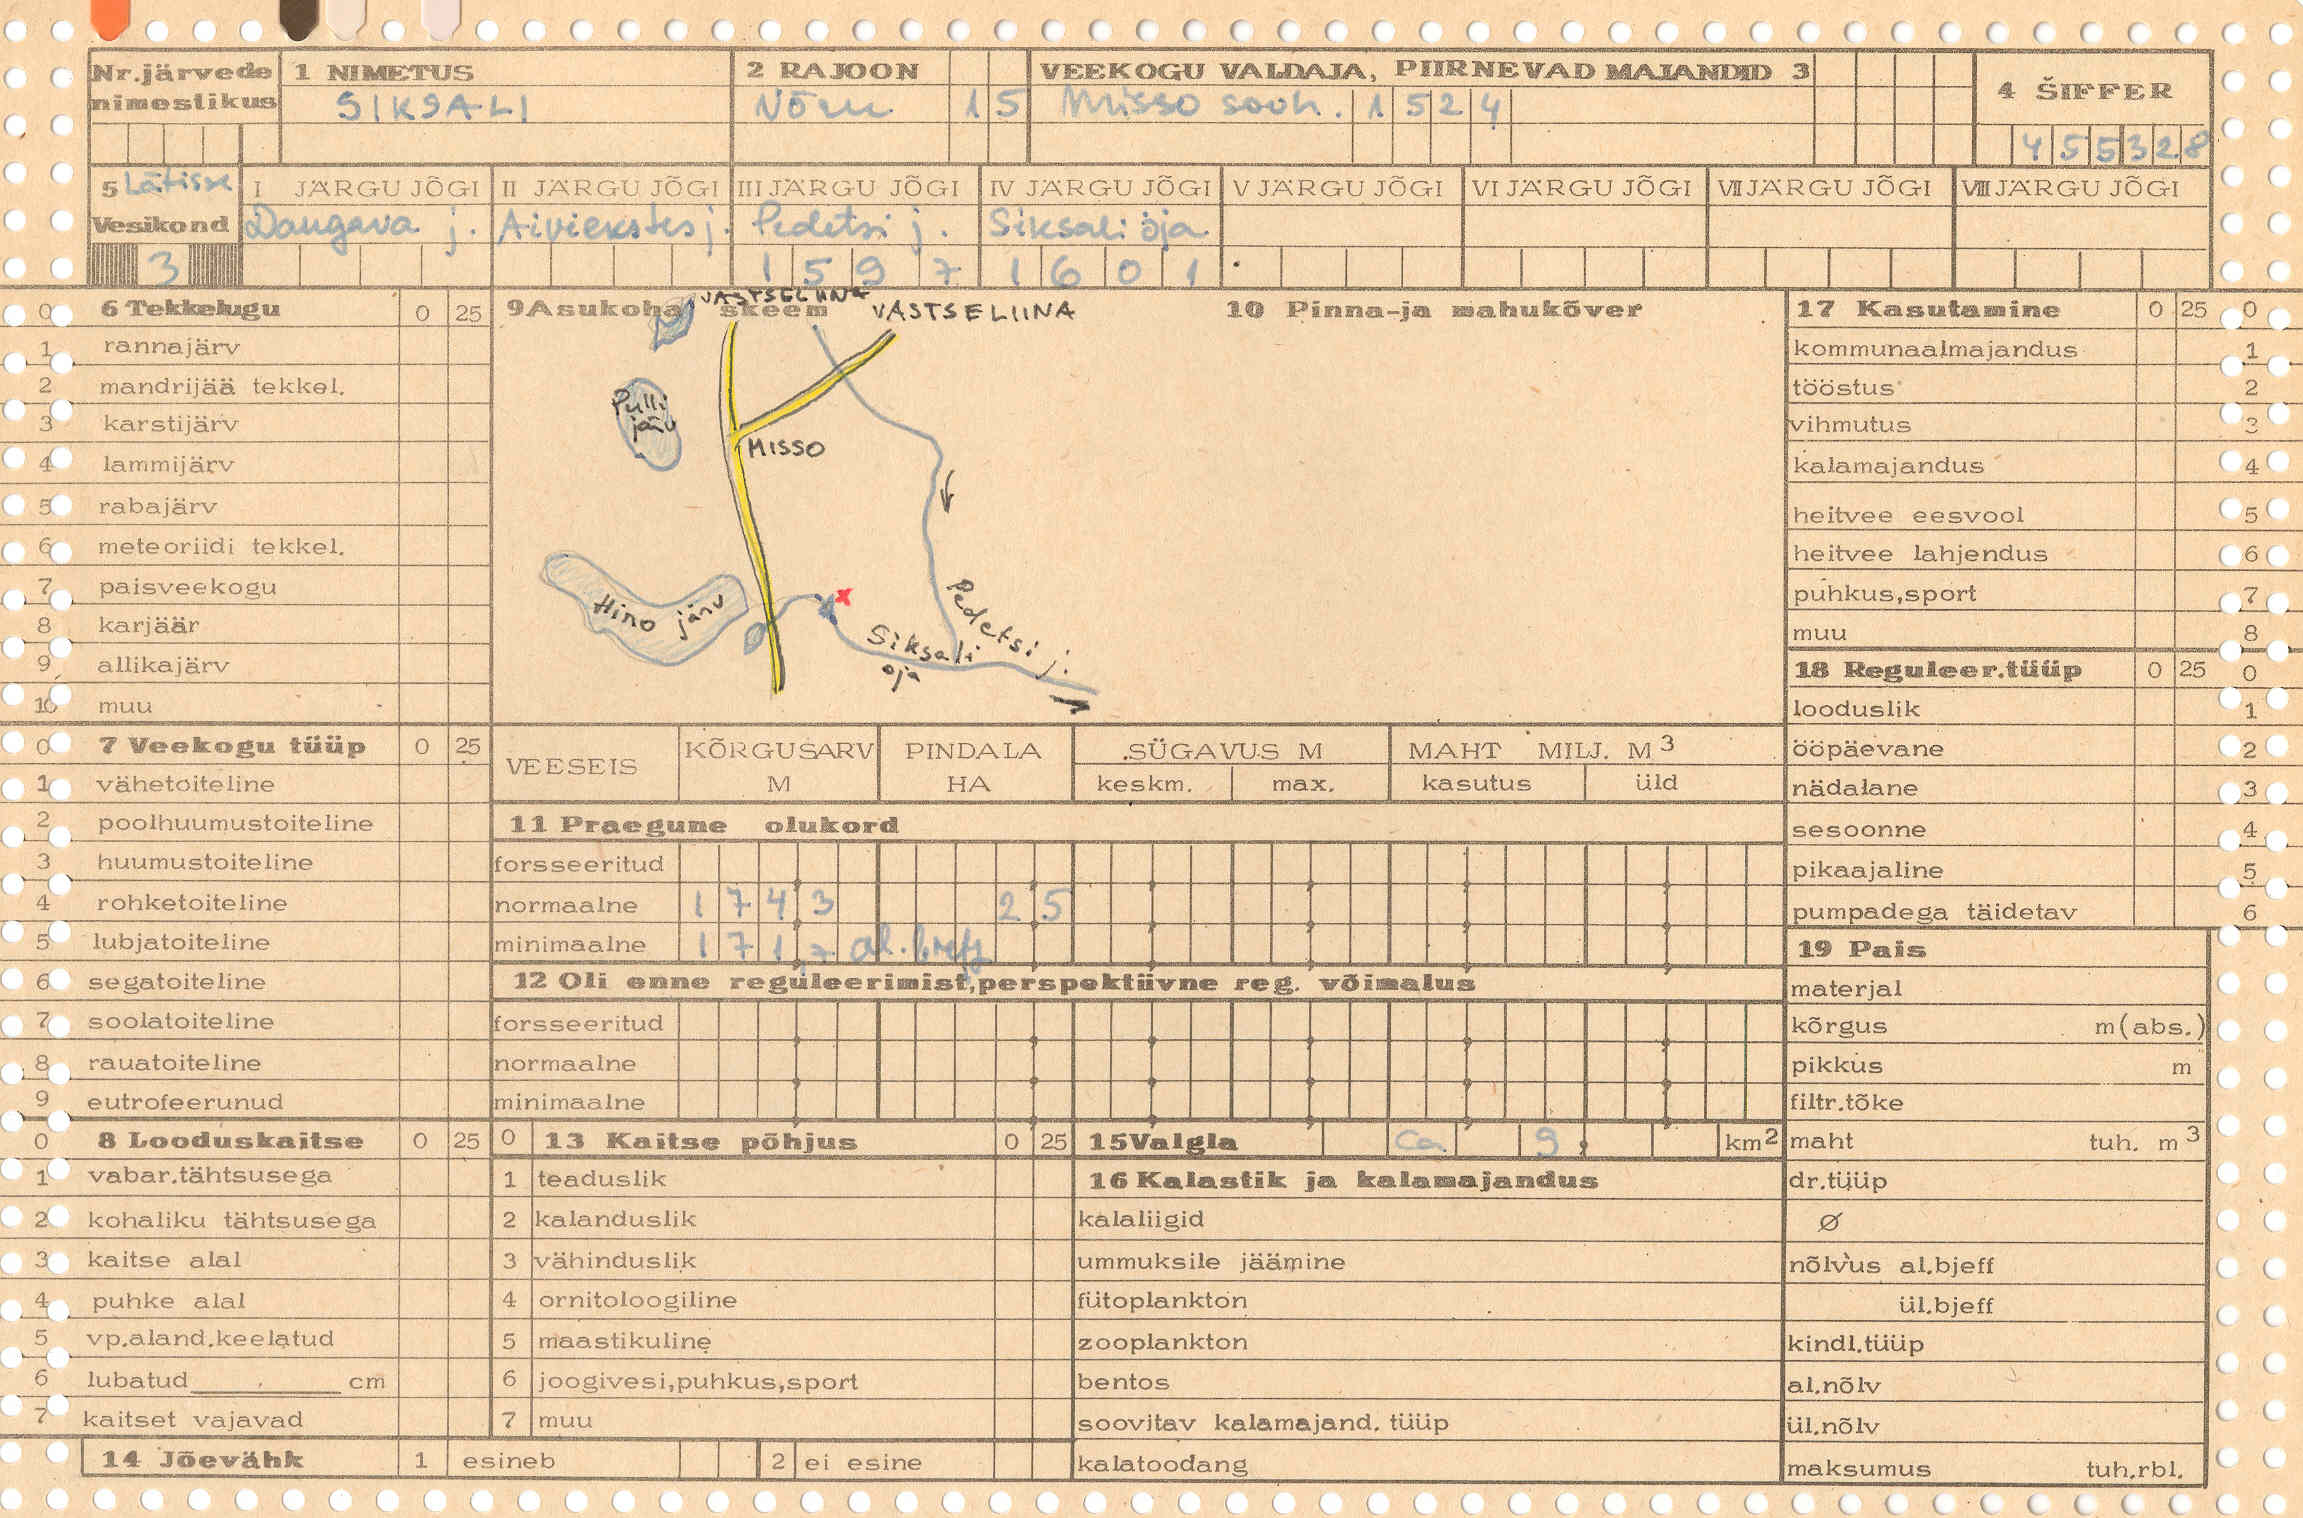 Nr.järvede nimestikus
1 NIMETUS
SIKSALI
2 RAJOON
Võru 15
VEEKOGU VALDAJA, PIIRNEVAD MAJANDID 3
Misso sovh. 1524
4 ŠIFFER
455328
5 Lätisse
Vesikond
3
I JÄRGU JÕGI
Daugava j.
II JÄRGU JÕGI
Aiviekstes j.
III JÄRGU JÕGI
Pedetsi j.
1597
IV JÄRGU JÕGI
Siksali oja
1601
V JÄRGU JÕGI
VI JÄRGU JÕGI
VII JÄRGU JÕGI
VIII JÄRGU JÕGI
0 6 Tekkelugu 0 25
1 rannajärv
2 mandrijää tekkel.
3 karstijärv
4 lammijärv
5 rabajärv
6 meteoriidi tekkel.
7 paisveekogu
8 karjäär
9 allikajärv
10 muu
0 7 Veekogu tüüp 0 25
1 vähetoiteline
2 poolhuumustoiteline
3 huumustoiteline
4 rohketoiteline
5 lubjatoiteline
6 segatoiteline
7 soolatoiteline
8 rauatoiteline
9 eutrofeerunud
0 8 Looduskaitse 0 25
1 vabar.tähtsusega
2 kohaliku tähtsusega
3 kaitse alal
4 puhke alal
5 vp.aland.keelatud
6 lubatud cm
7 kaitset vajavad
14 Jõevähk 1 esineb 2 ei esine
9 Asukoha skeem
VASTSELIINA
VASTSELIINA
Pulli järv
MISSO
Hino järv
Siksali oja
Pedetsi j.
10 Pinna-ja mahukõver
VEESEIS
KÕRGUSARV M
PINDALA HA
SÜGAVUS M
keskm. max.
MAHT MILJ. M3
kasutus üld
11 Praegune olukord
forsseeritud
normaalne 1743 25
minimaalne 171,7 al. bjef
12 Oli enne reguleerimist,perspektiivne reg. võimalus
forsseeritud
normaalne
minimaalne
0 13 Kaitse põhjus 0 25
1 teaduslik
2 kalanduslik
3 vähinduslik
4 ornitoloogiline
5 maastikuline
6 joogivesi,puhkus,sport
7 muu
15 Valgla ca 9 km2
16 Kalastik ja kalamajandus
kalaliigid
ummuksile jäämine
fütoplankton
zooplankton
bentos
soovitav kalamajand. tüüp
kalatoodang
17 Kasutamine 0 25 0
kommunaalmajandus 1
tööstus 2
vihmutus 3
kalamajandus 4
heitvee eesvool 5
heitvee lahjendus 6
puhkus,sport 7
muu 8
18 Reguleer.tüüp 0 25 0
looduslik 1
ööpäevane 2
nädalane 3
sesoonne 4
pikaajaline 5
pumpadega täidetav 6
19 Pais
materjal
kõrgus m(abs.)
pikkus m
filtr.tõke
maht tuh. m3
dr.tüüp
Ø
nõlvus al.bjeff
ül.bjeff
kindl.tüüp
al.nõlv
ül.nõlv
maksumus tuh.rbl.